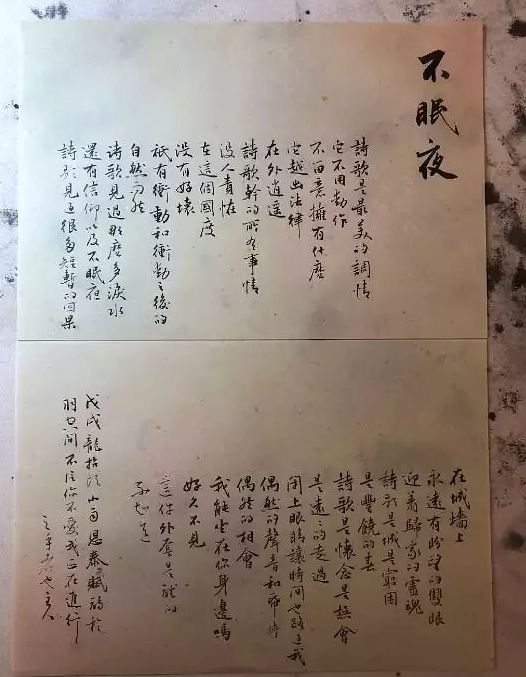 不眠夜
詩歌是最美的調情
它不用動作
不留意擁有什麼
它越出法律
在外逍遥
詩歌幹的所有事情
沒人責怪
在這個國度
沒有好壞
祇有衝動和衝動之後的
自然而然
诗歌見過那麼多淚水
還有信仰以及不眠夜
詩歌見過很多短暫的因果
在城墻上
永遠有盼望的雙眼
迎着歸家的靈魂
詩歌是城是窮困
是豐饒的春
詩歌是懷念是
是遠遠的走過
閉上眼睛讓時間也路過我
偶然的聲音和
偶然的相會
我能坐在你身邊嗎
好久不見
這件外套是
不知道
戊戌龍抬頭小雨恩泰賦詩於